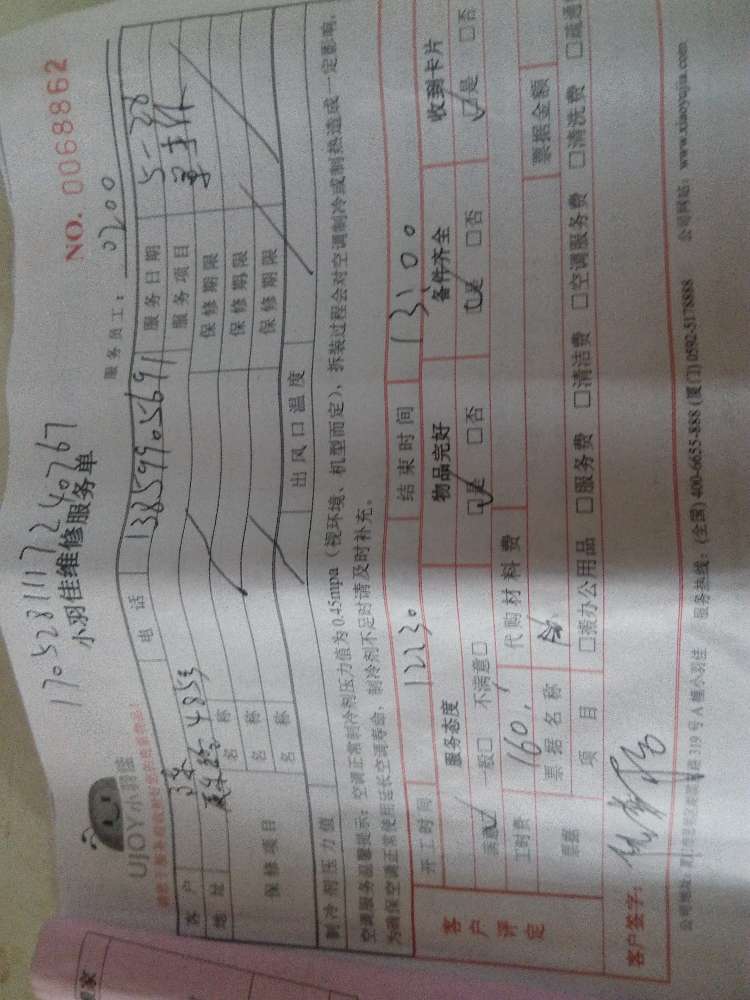 1705281117240767
UJOY小羽佳
小羽佳维修服务单
NO. 0068862
服务员工： 0200
客户
电话 13859905691
服务日期 5-28
地址
服务项目
保修项目
名称 保修期限
名称 保修期限
名称 保修期限
制冷剂压力值
出风口温度
空调服务温馨提示：空调正常制冷剂压力值为0.45mpa（视环境、机型而定），拆装过程会对空调制冷或制热造成一定影响，
为确保空调正常使用延长空调寿命，制冷剂不足时请及时补充。
开工时间 12230
结束时间 13:00
客户评定
服务态度 物品完好 备件齐全 收到卡片
满意 一般□ 不满意□ □是 □否 □是 □否 □是 □否
工时费 160 代购材料费
票据 票据名称 票据金额
项目 □报办公用品 □服务费 □清洁费 □空调服务费 □清洗费 □疏通
客户签字：
319号A幢小羽佳 服务热线：(全国) 400-6655-888 (厦门) 0592-5178888 公司网站：www.xiaoyujia.com